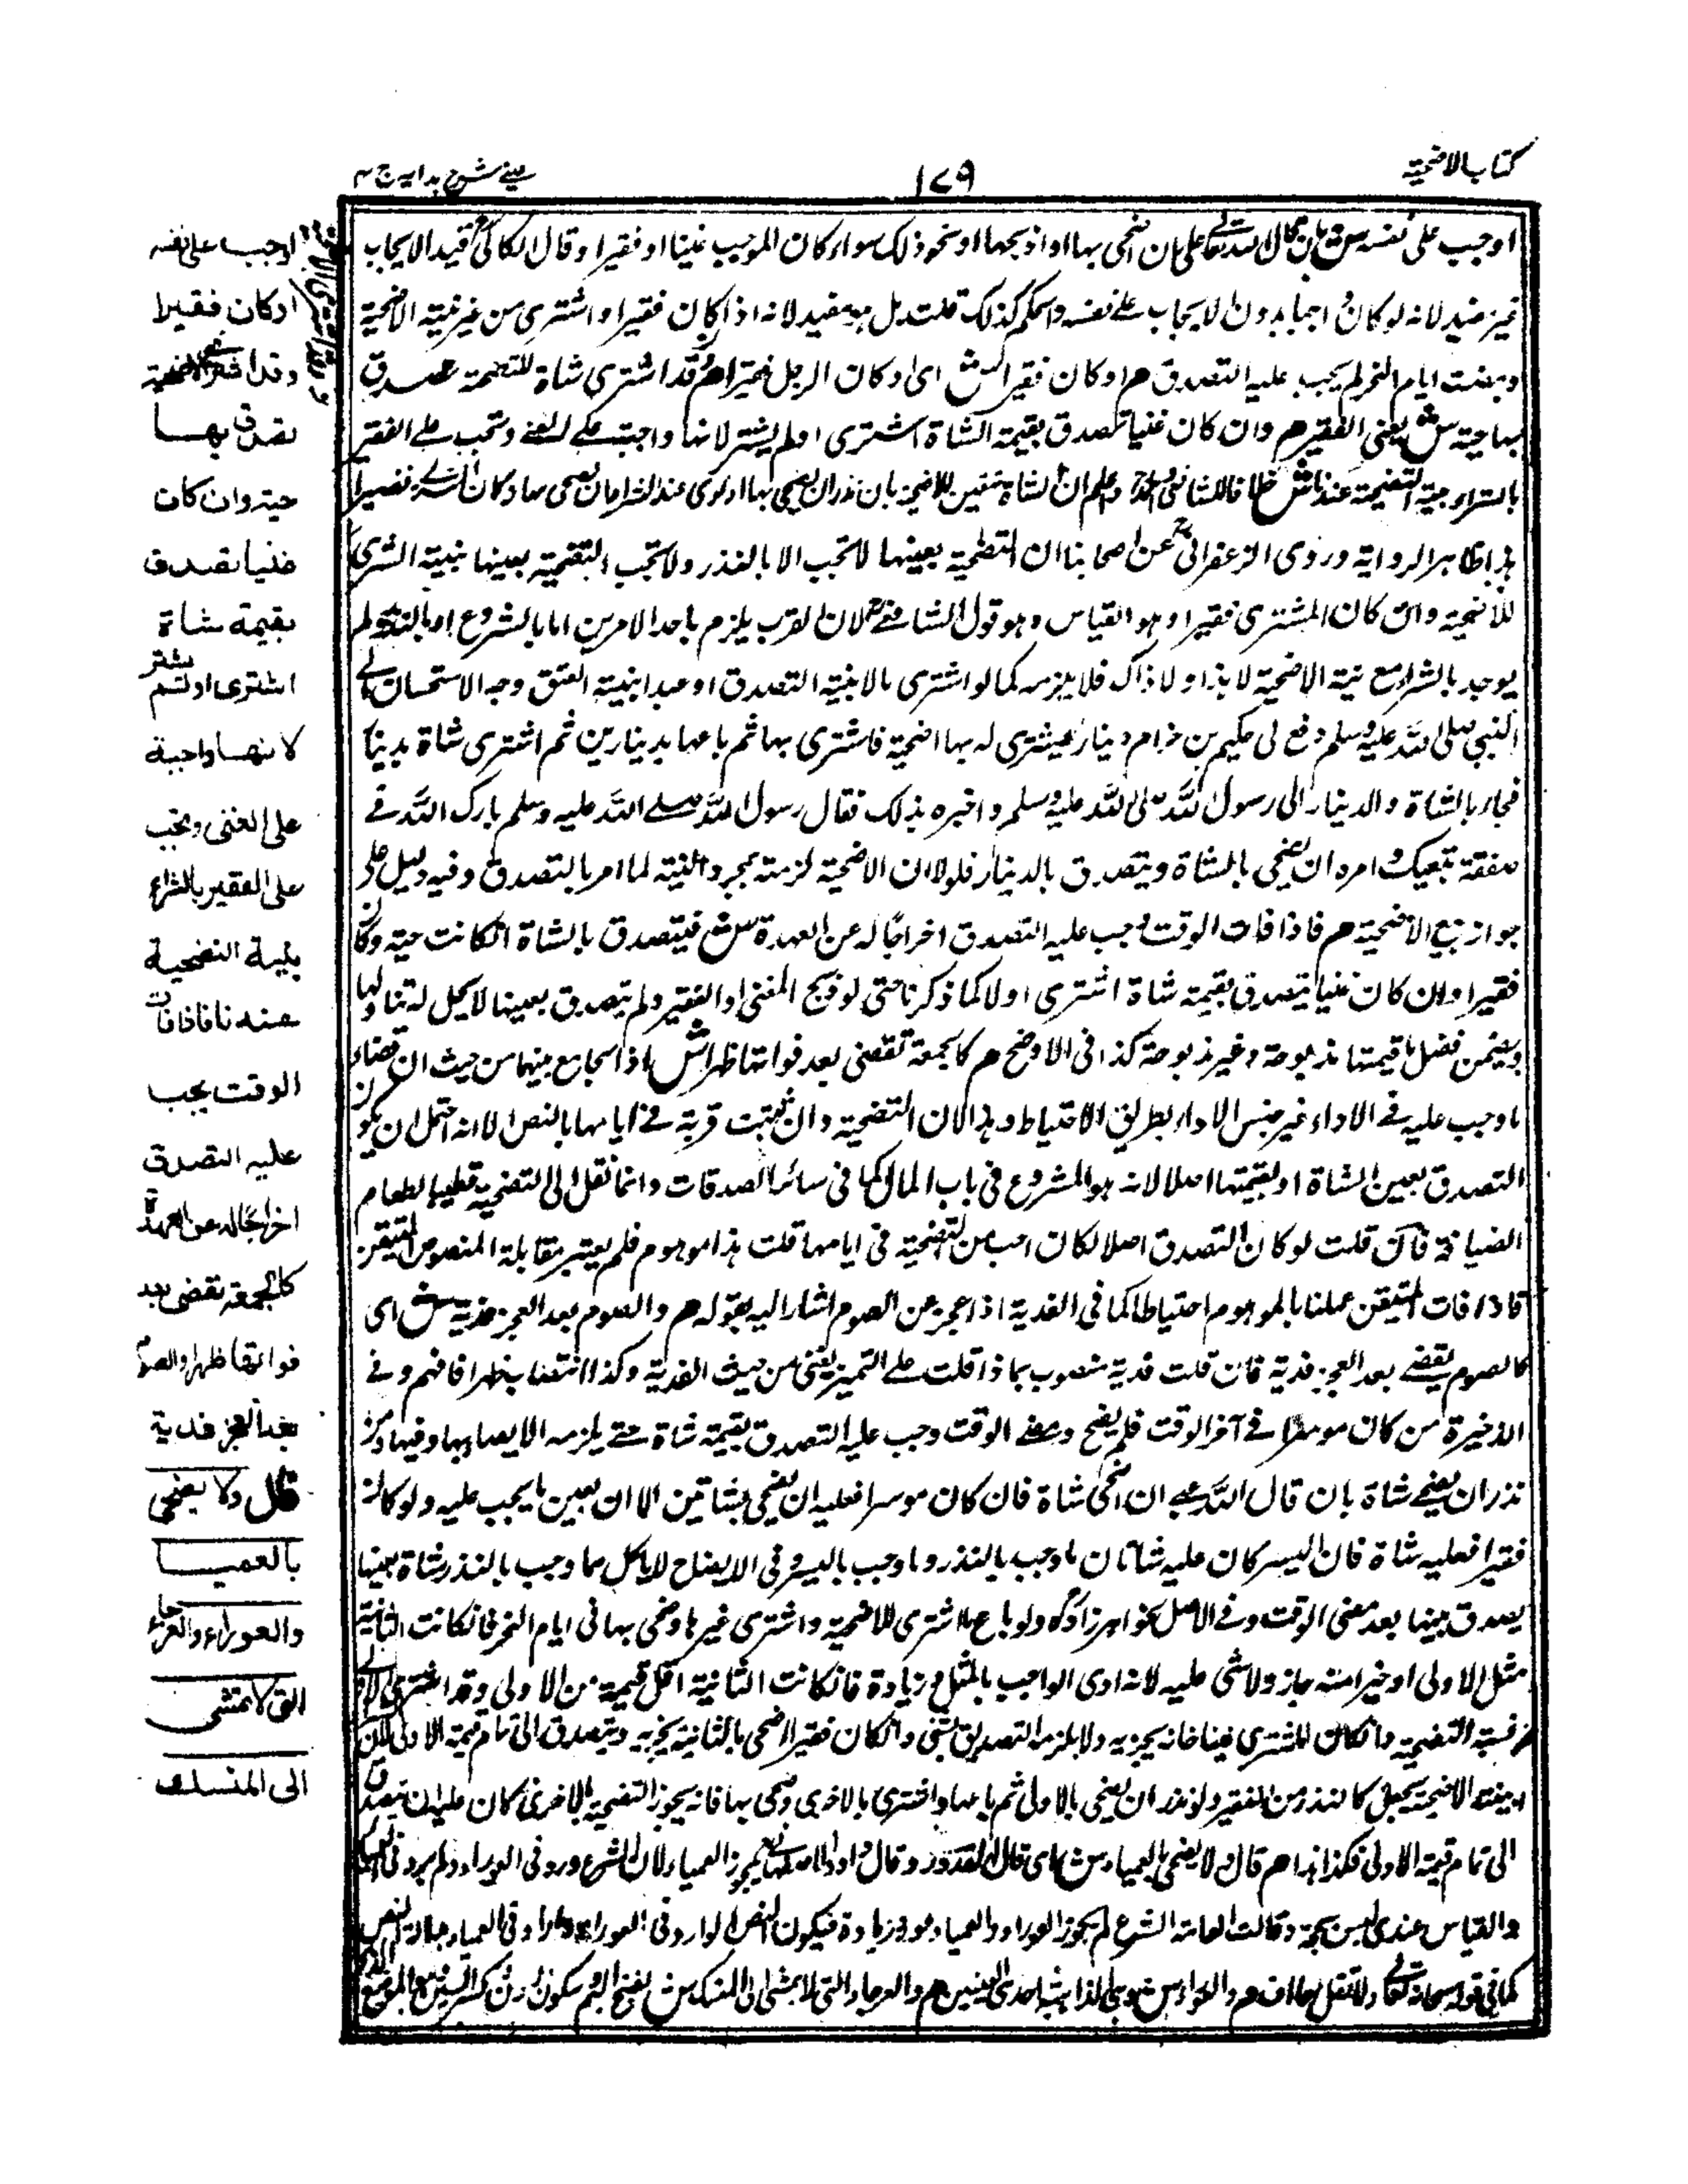 كتاب الاضحية
١٧٩
عينے شرح ہدایہ ج ٣
اوجب على نفسه ش بان قال لله تعالى على ان اضحى بها او اذبحها او نحو ذلك سواء كان الموجب غنيا او فقيرا وقال الكاكى قيد الايجاب
غير مفيد لانه لو كان واجبا بدون الايجاب على نفسه والحكم كذلك قلت بل هو مفيد لانه اذا كان فقيرا واشترى من غير نية الاضحية
ومضت ايام النحر لم يجب عليه التصدق هم او كان فقيرا ش اى او كان الرجل فقيرا هم وقد اشترى شاة للتضحية تصدق
بها حية ش يعنى الفقير هم وان كان غنيا تصدق بقيمة الشاة اشترى او لم يشتر لانها واجبة على الغنى وتجب على الفقير
بالشراء بنية التضحية عندنا ش خلافا للشافعى واحمد واعلم ان الشاة تتعين للاضحية بان نذر ان يضحى بها او نوى عند الشراء ان يضحى بها وكان المشترى فقيرا
هذا ظاهر الرواية وروى الزعفرانى عن اصحابنا ان التضحية بعينها لا تجب الا بالنذر ولا تجب التضحية بعينها بنية الشرى
للاضحية وان كان المشترى فقيرا وهو القياس وهو قول الشافعى لان القرب يلزم باحد الامرين اما بالشروع او بالنذر ولم
يوجد بالشراء مع نية الاضحية لا هذا ولا ذاك فلا يلزمه كما لو اشترى مالا بنية التصدق او عبدا بنية العتق وجه الاستحسان ان
النبى صلى الله عليه وسلم دفع الى حكيم بن حزام دينارا ليشترى له بها اضحية فاشترى بها ثم باعها بدينارين ثم اشترى شاة بدينار
فجاء بالشاة والدينار الى رسول الله صلى الله عليه وسلم واخبره بذلك فقال رسول الله صلى الله عليه وسلم بارك الله فى
صفقة يمينك وامره ان يضحى بالشاة ويتصدق بالدينار فلولا ان الاضحية لزمته بمجرد النية لما امر بالتصدق وفيه دليل على
جواز بيع الاضحية هم فاذا فات الوقت وجب عليه التصدق اخراجا له عن العهدة ش فيتصدق بالشاة ان كانت حية وكان
فقيرا وان كان غنيا يتصدق بقيمة شاة اشترى او لا كما ذكرنا حتى لو ذبح الغنى او الفقير ولم يتصدق بعينها لا يحل له تناولها
ويضمن فضل ما قيمتها مذبوحة وغير مذبوحة كذا فى الاوضح هم كالجمعة تقضى بعد فواتها ظهرا ش اذ الجامع بينهما من حيث ان قضاء
ما وجب عليه فى الاداء غير جنس الاداء بطريق الاحتياط وهذا لان التضحية وان ثبتت قربة فى ايامها بالنص الا انه احتمل ان يكون
التصدق بعين الشاة او بقيمتها اصلا لانه هو المشروع فى باب المال كما فى سائر الصدقات وانما نقل الى التضحية تطييبا لطعام
الضيافة فان قلت لو كان التصدق اصلا لكان احب من التضحية فى ايامها قلت هذا موهوم فلم يعتبر مقابلة المنصوص المتيقن
فاذا فات المتيقن عملنا بالموهوم احتياطا كما فى الفدية اذا عجز عن الصوم اشار اليه بقوله هم والصوم بعد العجز فدية ش اى
كالصوم يقضى بعد العجز فدية فان قلت فدية منصوب بماذا قلت على التمييز يعنى من حيث الفدية وكذا انتصاب ظهرا فافهم وفى
الذخيرة من كان موسرا فى آخر الوقت فلم يضح ومضى الوقت وجب عليه التصدق بقيمة شاة حتى يلزمه الايصاء بها وفيها من
نذر ان يضحى شاة بان قال لله على ان اضحى شاة فان كان موسرا فعليه ان يضحى بشاتين الا ان يعين ما يجب عليه ولو كان
فقيرا فعليه شاة فان ايسر كان عليه شاتان ما وجب بالنذر وما وجب باليسر وفى الايضاح لا ياكل مما وجب بالنذر شاة بعينها
يصدق بعينها بعد مضى الوقت وفى الاصل لخواهرزاده ولو باع ما اشترى للاضحية واشترى غيرها وضحى بها فى ايام النحر فان كانت الثانية
مثل الاولى او خيرا منه جاز ولا شى عليه لانه ادى الواجب بالمثل وزيادة فان كانت الثانية اقل قيمة من الاولى وقد اشترى الاولى
بنية التضحية وان كان المشترى غنيا فانه يجزيه ولا يلزمه التصدق بشئ وان كان فقيرا ضحى بالثانية يجزيه ويتصدق الى تمام قيمة الاولى لان
نية الاضحية يجعل كالنذر من الفقير ولو نذر ان يضحى بالاولى ثم باعها واشترى بالاخرى وضحى بها فانه يجوز التضحية بالاخرى كان عليه ان يتصدق
الى تمام قيمة الاولى فكذا هذا هم قال ولا يضحى بالعمياء ش اى قال القدورى وقال داود الاصفهانى يجوز العمياء لان الشرع ورد فى العوراء ولم يرد فى العمياء
والقياس عندى ليس بحجة وقالت العامة الشرع لم يجوز العوراء والعمياء عور وزيادة فيكون النص الوارد فى العوراء واردا فى العمياء بدلالة النص
كما فى قوله سبحانه تعالى ولا تقل لهما اف هم والعوراء ش وهى الذاهبة احدى العينين هم والعرجاء التى لا تمشى الى المنسك ش بفتح الميم وسكون النون وكسر السين وهو الموضع الذى
اوجب على نفسه
او كان فقيرا
وقد اشترى الاضحية
تصدق بها
حية وان كان
غنيا تصدق
بقيمة شاة
اشترى او لم يشتر
لانها واجبة
على الغنى وتجب
على الفقير بالشراء
بنية التضحية
عندنا فاذا فات
الوقت يجب
عليه التصدق
اخراجا له عن العهدة
كالجمعة تقضى بعد
فواتها ظهرا والصوم
بعد العجز فدية
قال ولا يضحى
بالعمياء
والعوراء والعرجاء
التى لا تمشى
الى المنسك